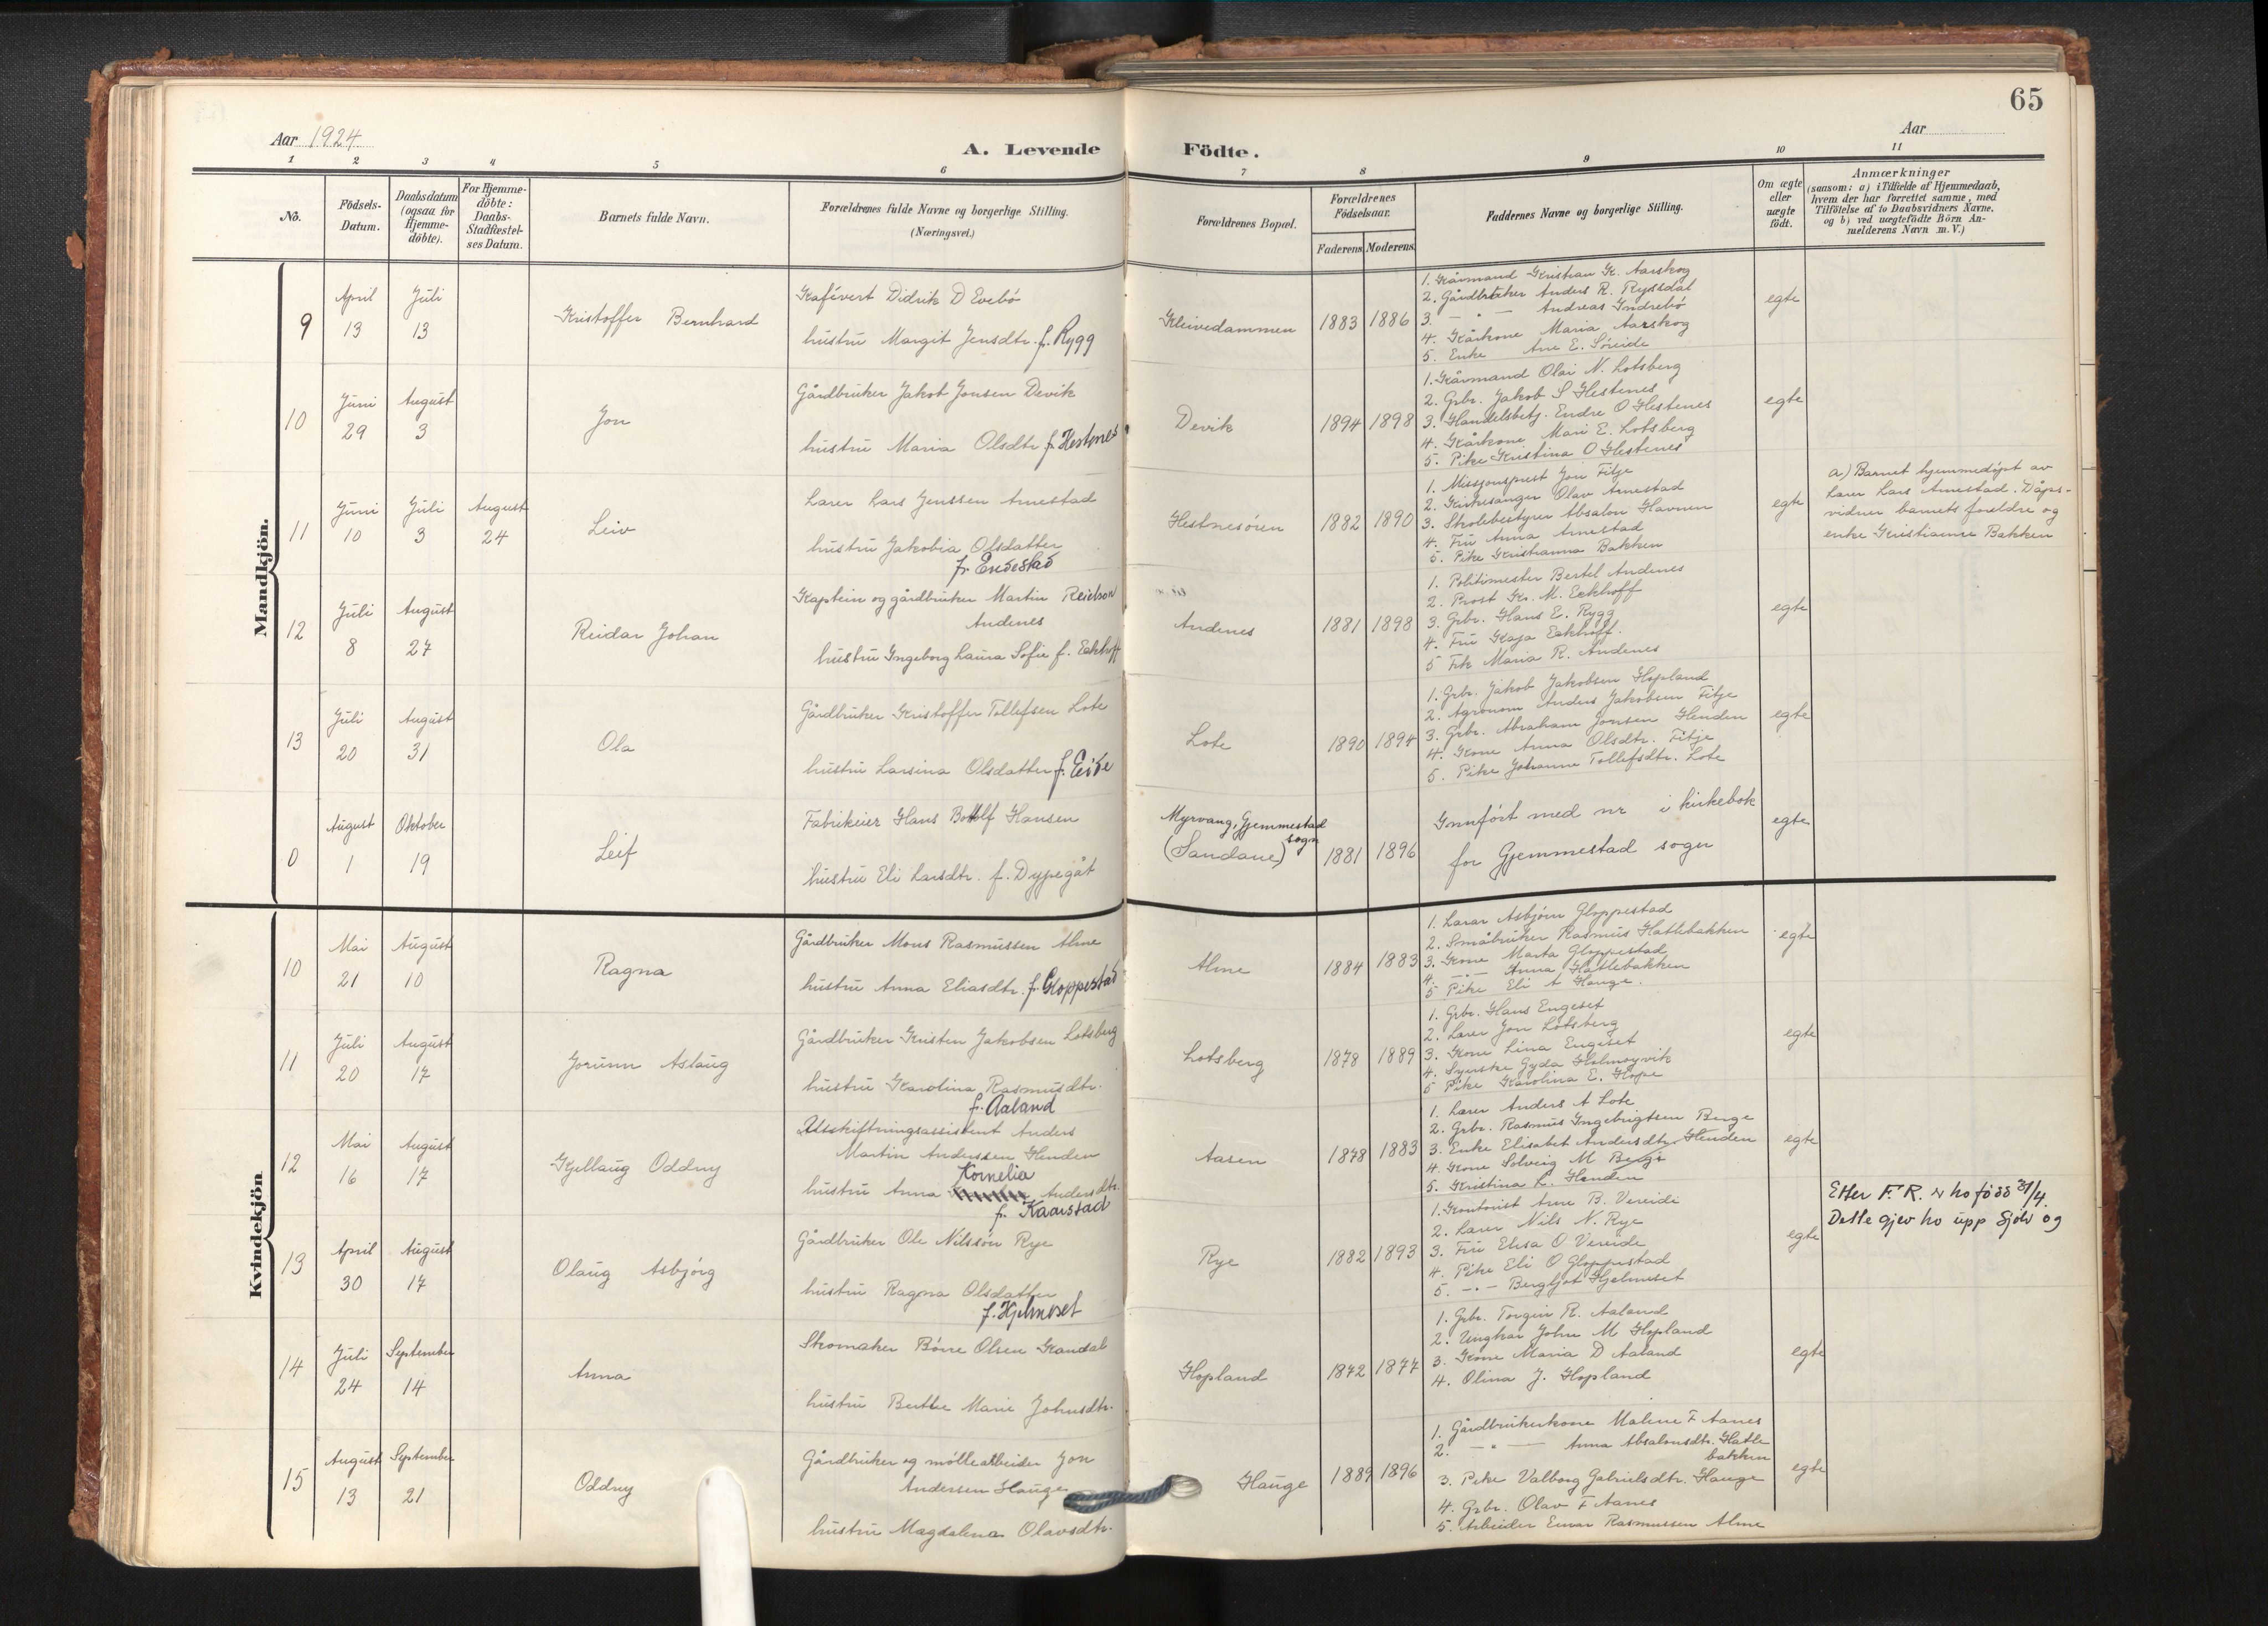 65
Aar 1924
A. Levende Födte.
Aar
1 2 3 4 5 6 7 8 9 10 11
No.
Födsels-Datum.
Daabsdatum (ogsaa for Hjemme-döbte).
For Hjemme-döbte: Daabs-Stadfæstel-ses Datum.
Barnets fulde Navn.
Forældrenes fulde Navne og borgerlige Stilling.
(Næringsvei.)
Forældrenes Bopæl.
Forældrenes Födselsaar.
Faderens Moderens
Faddernes Navne og borgerlige Stilling.
Om ægte eller uægte födt.
Anmærkninger
(saasom: a) i Tilfælde af Hjemmedaab,
hvem der har forrettet samme, med
Tilföielse af to Daabsvidners Navne,
og b) ved uægtefödte Börn An-
melderens Navn m.V.)
Mandkjön.
9
April 13
Juli 13
Kristoffer Bernhard
Kafévert Didrik D Evebö
hustru Margit Jensdtr. f. Rygg
Kleivedammen
1883 1886
1. Kårmand Kristian K. Aarskog
2. Gårdbruker Anders R. Ryssdal
3. — " — Andreas Indrebö
4. Kårkone Maria Aarskog
5. Enke Ane E. Söreide
egte
10
Juni 29
August 3
Jon
Gårdbruker Jakob Jonsen Devik
hustru Maria Olsdtr f. Hestnes
Devik
1894 1898
1. Kårmand Olai N. Lotsberg
2. Grbr. Jakob S Hestenes
3. Handelsbetj. Endre O Hestenes
4. Kårkone Mari E. Lotsberg
5. Pike Kristina O Hestenes
egte
11
Juni 10
Juli 3
August 24
Leiv
Lærer Lars Jenssen Arnestad
hustru Jakobia Olsdatter
f. Endestad
Hestnesören
1882 1890
1. Missjonsprest Jon Fitje
2. Kirkesanger Olav Arnestad
3. Skolebestyrer Absalon Havnen
4. Fru Anna Arnestad
5. Pike Kristianna Bakken
egte
a) Barnet hjemmedöpt av
lærer Lars Arnestad. Dåps-
vidner barnets foreldre og
enke Kristianne Bakken
12
Juli 8
August 27
Reidar Johan
Kaptein og gårdbruker Martin Reidson
Andenes
hustru Ingeborg Laura Sofie f. Eckhoff
Andenes
1881 1898
1. Politimester Bertel Andenes
2. Prost Kr. M. Eckhoff
3. Grbr. Hans E. Rygg
4. Fru Kaja Eckhoff.
5 Frk Maria R. Andenes
egte
13
Juli 20
August 31
Ola
Gårdbruker Kristoffer Tollefsen Lote
hustru Larsina Olsdatter f. Eide
Lote
1890 1894
1. Grbr. Jakob Jakobsen Hopland
2. Agronom Anders Jakobsen Fitje
3. Grbr. Abraham Jonsen Henden
4. Kone Anna Olsdtr. Fitje
5. Pike Johanne Tollefsdtr. Lote
egte
0
August 1
Oktober 19
Leif
Fabrikeier Hans Botolf Hansen
hustru Eli Larsdtr. f. Dypegåt
Myrvang, Gjemmestad
sogn
(Sandane)
1881 1896
Innfört med nr i kirkebok
for Gjemmestad sogn
egte
Kvindekjön
10
Mai 21
August 10
Ragna
Gårdbruker Mons Rasmussen Alme
hustru Anna Eliasdtr. f. Gloppestad
Alme
1884 1883
1. Lærer Asbjörn Gloppestad
2. Småbruker Rasmus Hattlebakken
3. Kone Marta Gloppestad
4. — " — Anna Hattlebakken
5 Pike Eli A Hauge.
egte
11
Juli 20
August 17
Jorunn Aslaug
Gårdbruker Kristen Jakobsen Lotsberg
hustru Karolina Rasmusdtr.
f. Aaland
Lotsberg
1878 1889
1. Grbr. Hans Engeset
2. Lærer Jon Lotsberg
3. Kone Lina Engeset
4. Syerske Gyda Holmöyvik
5 Pike Karolina E. Hope
egte
12
Mai 16
August 17
Kjellaug Oddny
Utskiftningsassistent Anders
Martin Anderssen Henden
Kornelia
hustru Anna Andersdtr.
f. Kaarstad
Aasen
1878 1883
1. Lærer Anders A Lote
2. Grbr. Rasmus Ingebrigtsen Berge
3. Enke Elisabet Andersdtr. Henden
4. Kone Solveig M Berge
5. Kristina L. Henden
egte
13
April 30
August 17
Olaug Asbjörg
Gårdbruker Ole Nilssön Rye
hustru Ragna Olsdatter
f. Hjelmeset
Rye
1882 1893
1. Kontorist Arne B. Vereide
2. Lærer Nils N. Rye
3. Fru Elisa O Vereide
4. Pike Eli O Gloppestad
5. — " — Bergljot Hjelmeset
egte
Etter F. R. er ho född 21/4.
Dette gjev ho upp sjölv og
14
Juli 24
September 14
Anna
Skomaker Börre Olsen Kandal
hustru Berthe Marie Johnsdtr.
Hopland
1872 1877
1. Grbr. Torgeir R. Aaland
2. Ungkar John M Hopland
3. Kone Maria D Aaland
4. Olina J. Hopland
egte
15
August 13
September 21
Oddny
Gårdbruker og möllearbeider Jon
Andersen Hauge
hustru Magdalena Olavsdtr.
Hauge
1889 1896
1. Gårdbrukerkone Malene F Aanes
2. — " — Anna Absalonsdtr. Hatle
bakken
3. Pike Valborg Gabrielsdtr. Hauge
4. Grbr. Olav F Aanes
5. Arbeider Einar Rasmussen Alme
egte